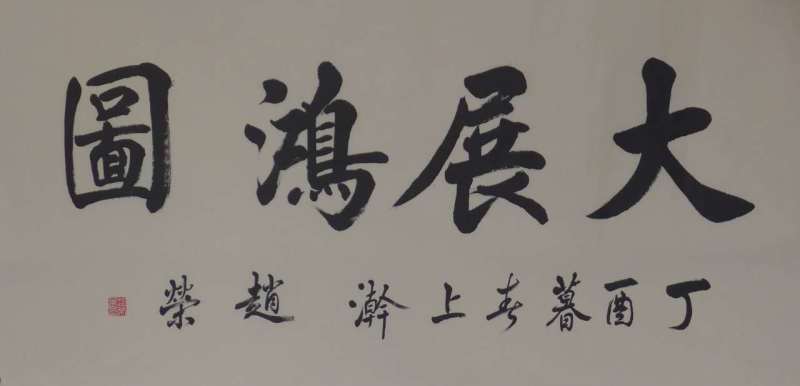 大展鴻圖
丁酉暮春上澣 趙榮